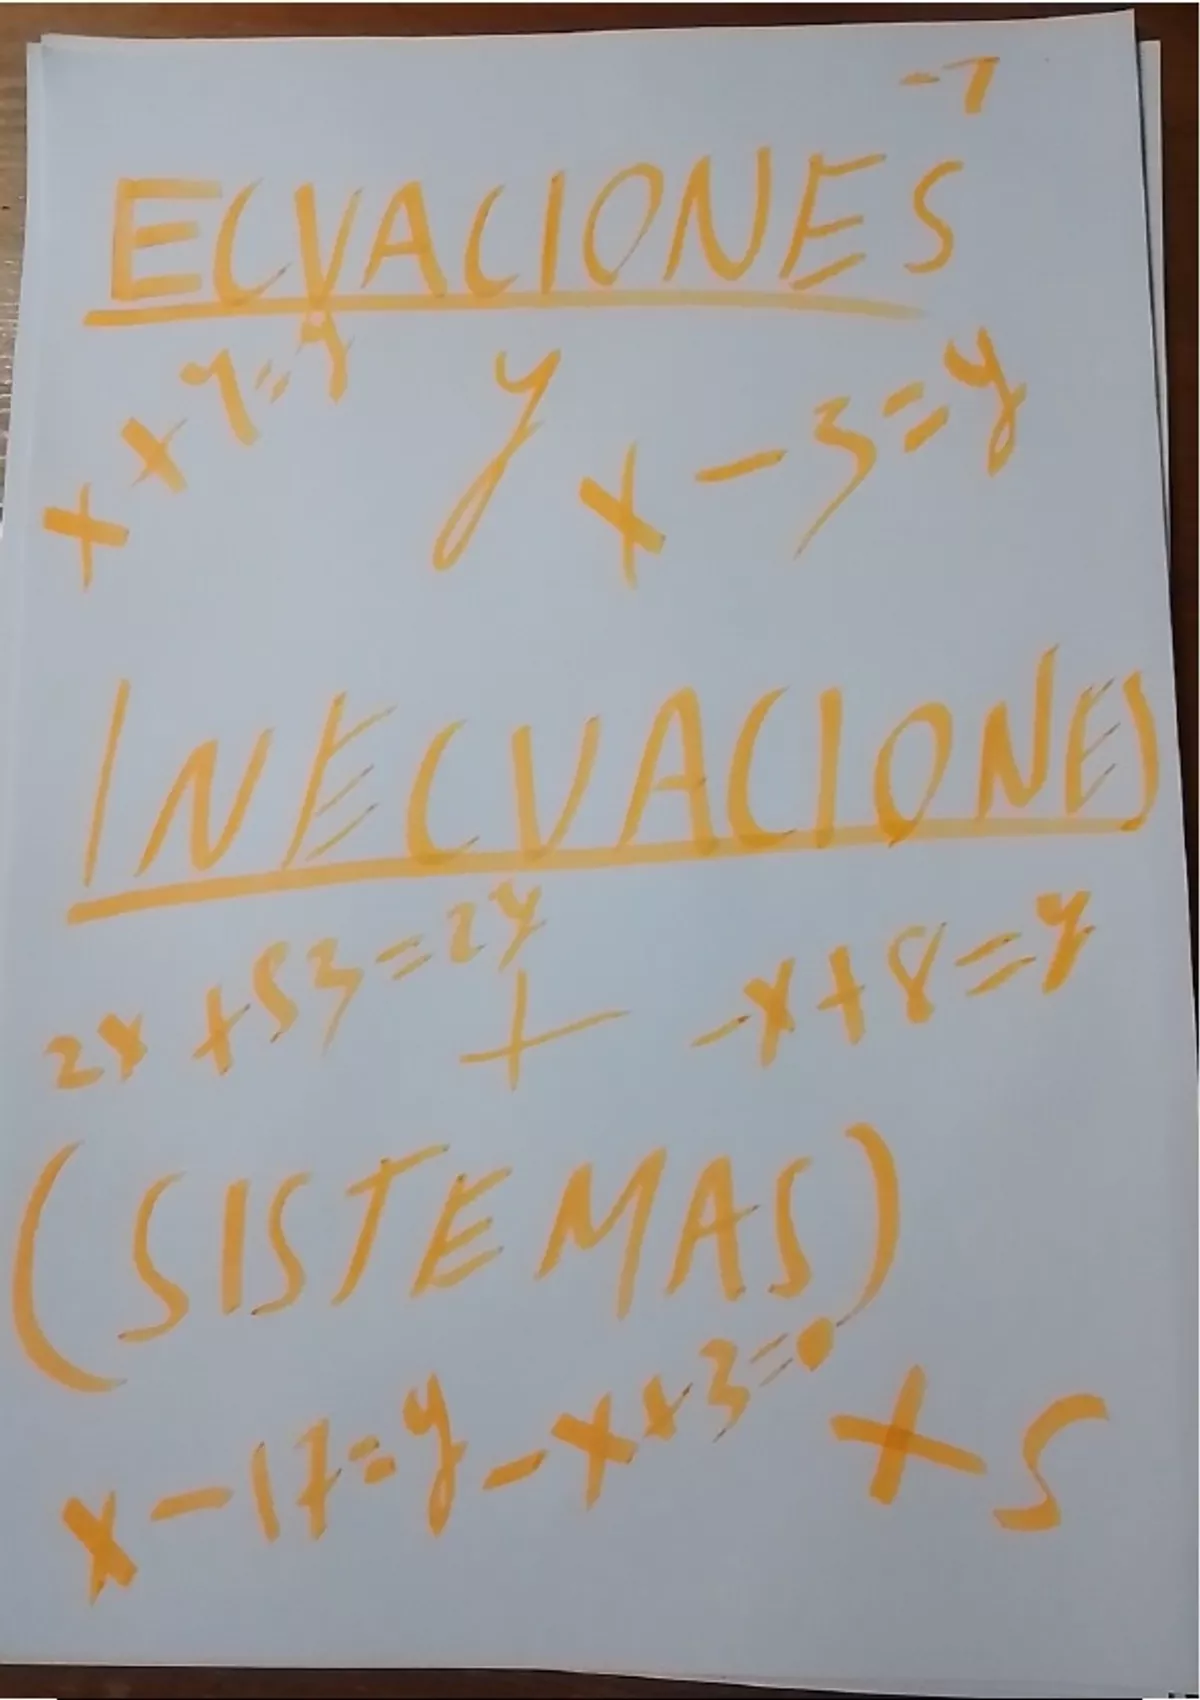 -7
ECUACIONES
x + 7 = y y x - 3 = y
INECUACIONES
2x + 53 = 2y + -x + 8 = y
(SISTEMAS)
x - 17 = y - x + 3 = 0 + 5